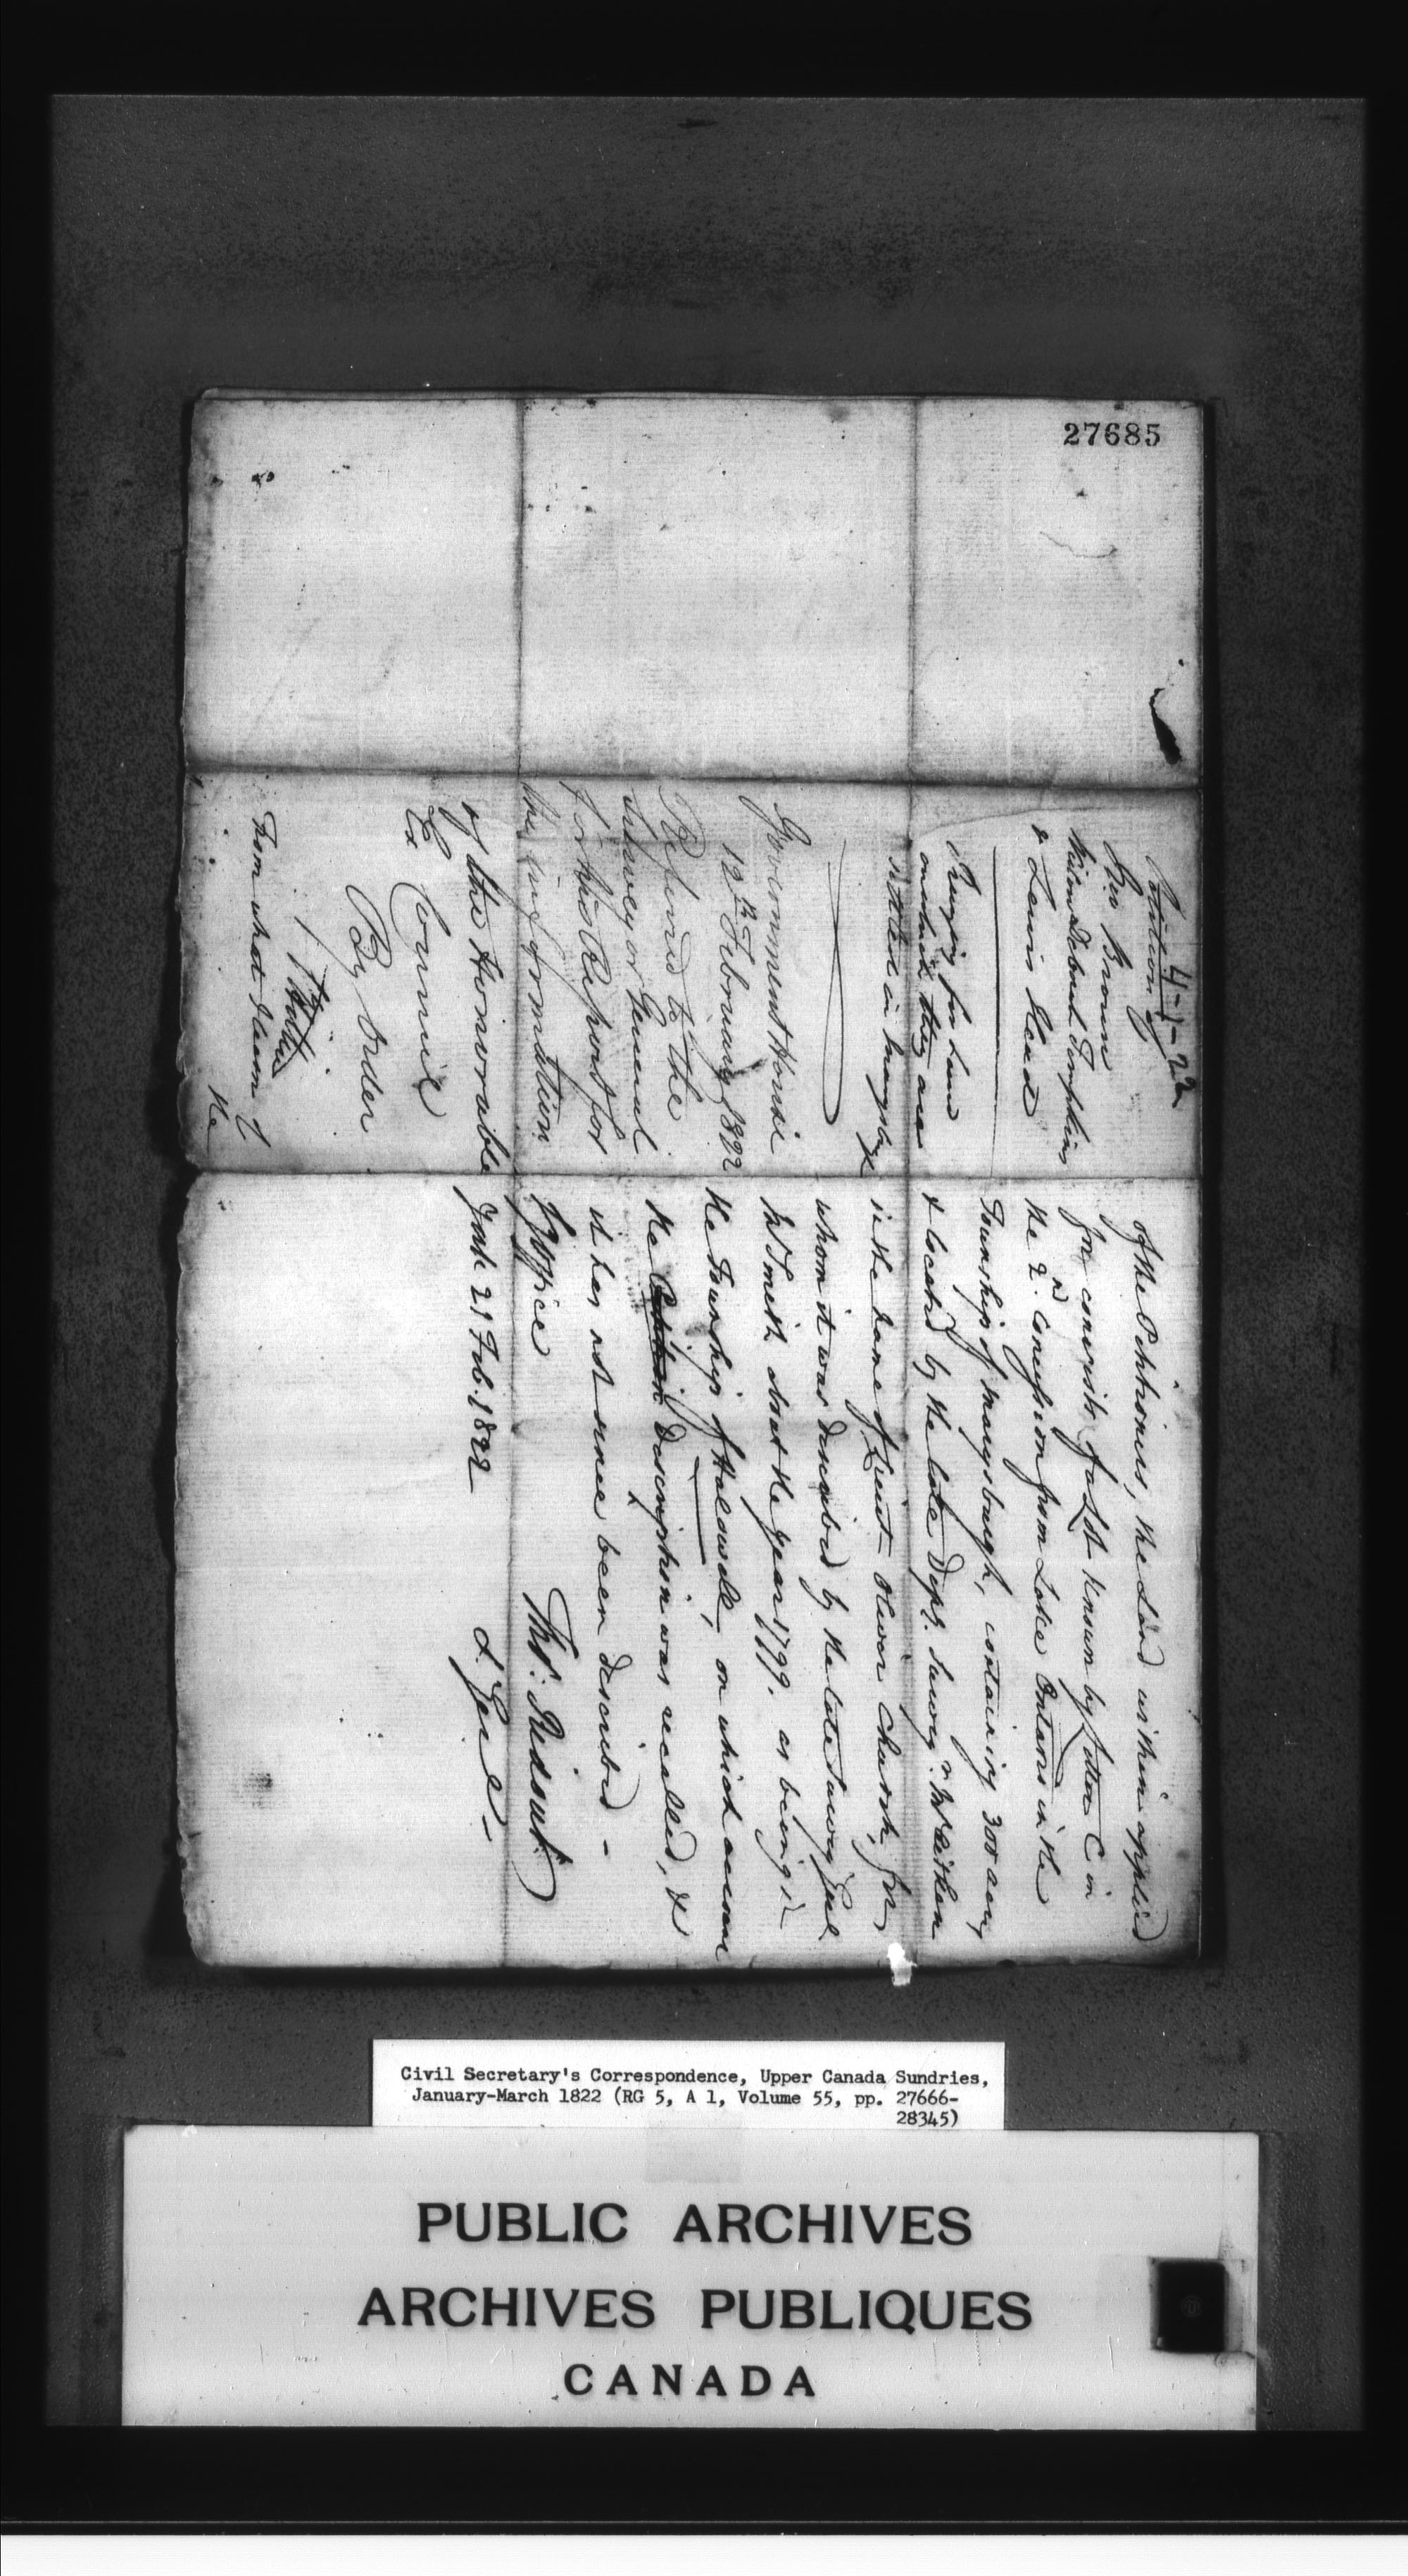 27685
4-1-22
Petition of
Geo Brown
Tompkins
& Lewis Head
Praying for Land
on which they are
settled in Marysburgh
Government House
12th February 1822
Referred to the
Surveyor General
for his Report for
the information
of the Honorable
Ex Council
By Order
From what I learn of
the
of the Petitioners, the Land within applied
for consists of a Lot known by letter C in
the 2nd Concession from Lake Ontario in the
Township of Marysburgh, containing 300 acres
& located by the late Depy. Surveyr. Mr Aitken
in the name of Lieut Oliver Church, for
whom it was described by the late Survey Genl
Mr Smith about the year 1799. as being in
the Township of Halowell, on which account
the description was recalled, &
it has not since been described -
S G Office
York 21 Feb. 1822
Thos. Ridout
S. Genl -
Civil Secretary's Correspondence, Upper Canada Sundries,
January-March 1822 (RG 5, A 1, Volume 55, pp. 27666-
28345)
PUBLIC ARCHIVES
ARCHIVES PUBLIQUES
CANADA